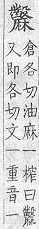 糳
倉各切油麻一榨曰糳
又即各切文一重音一